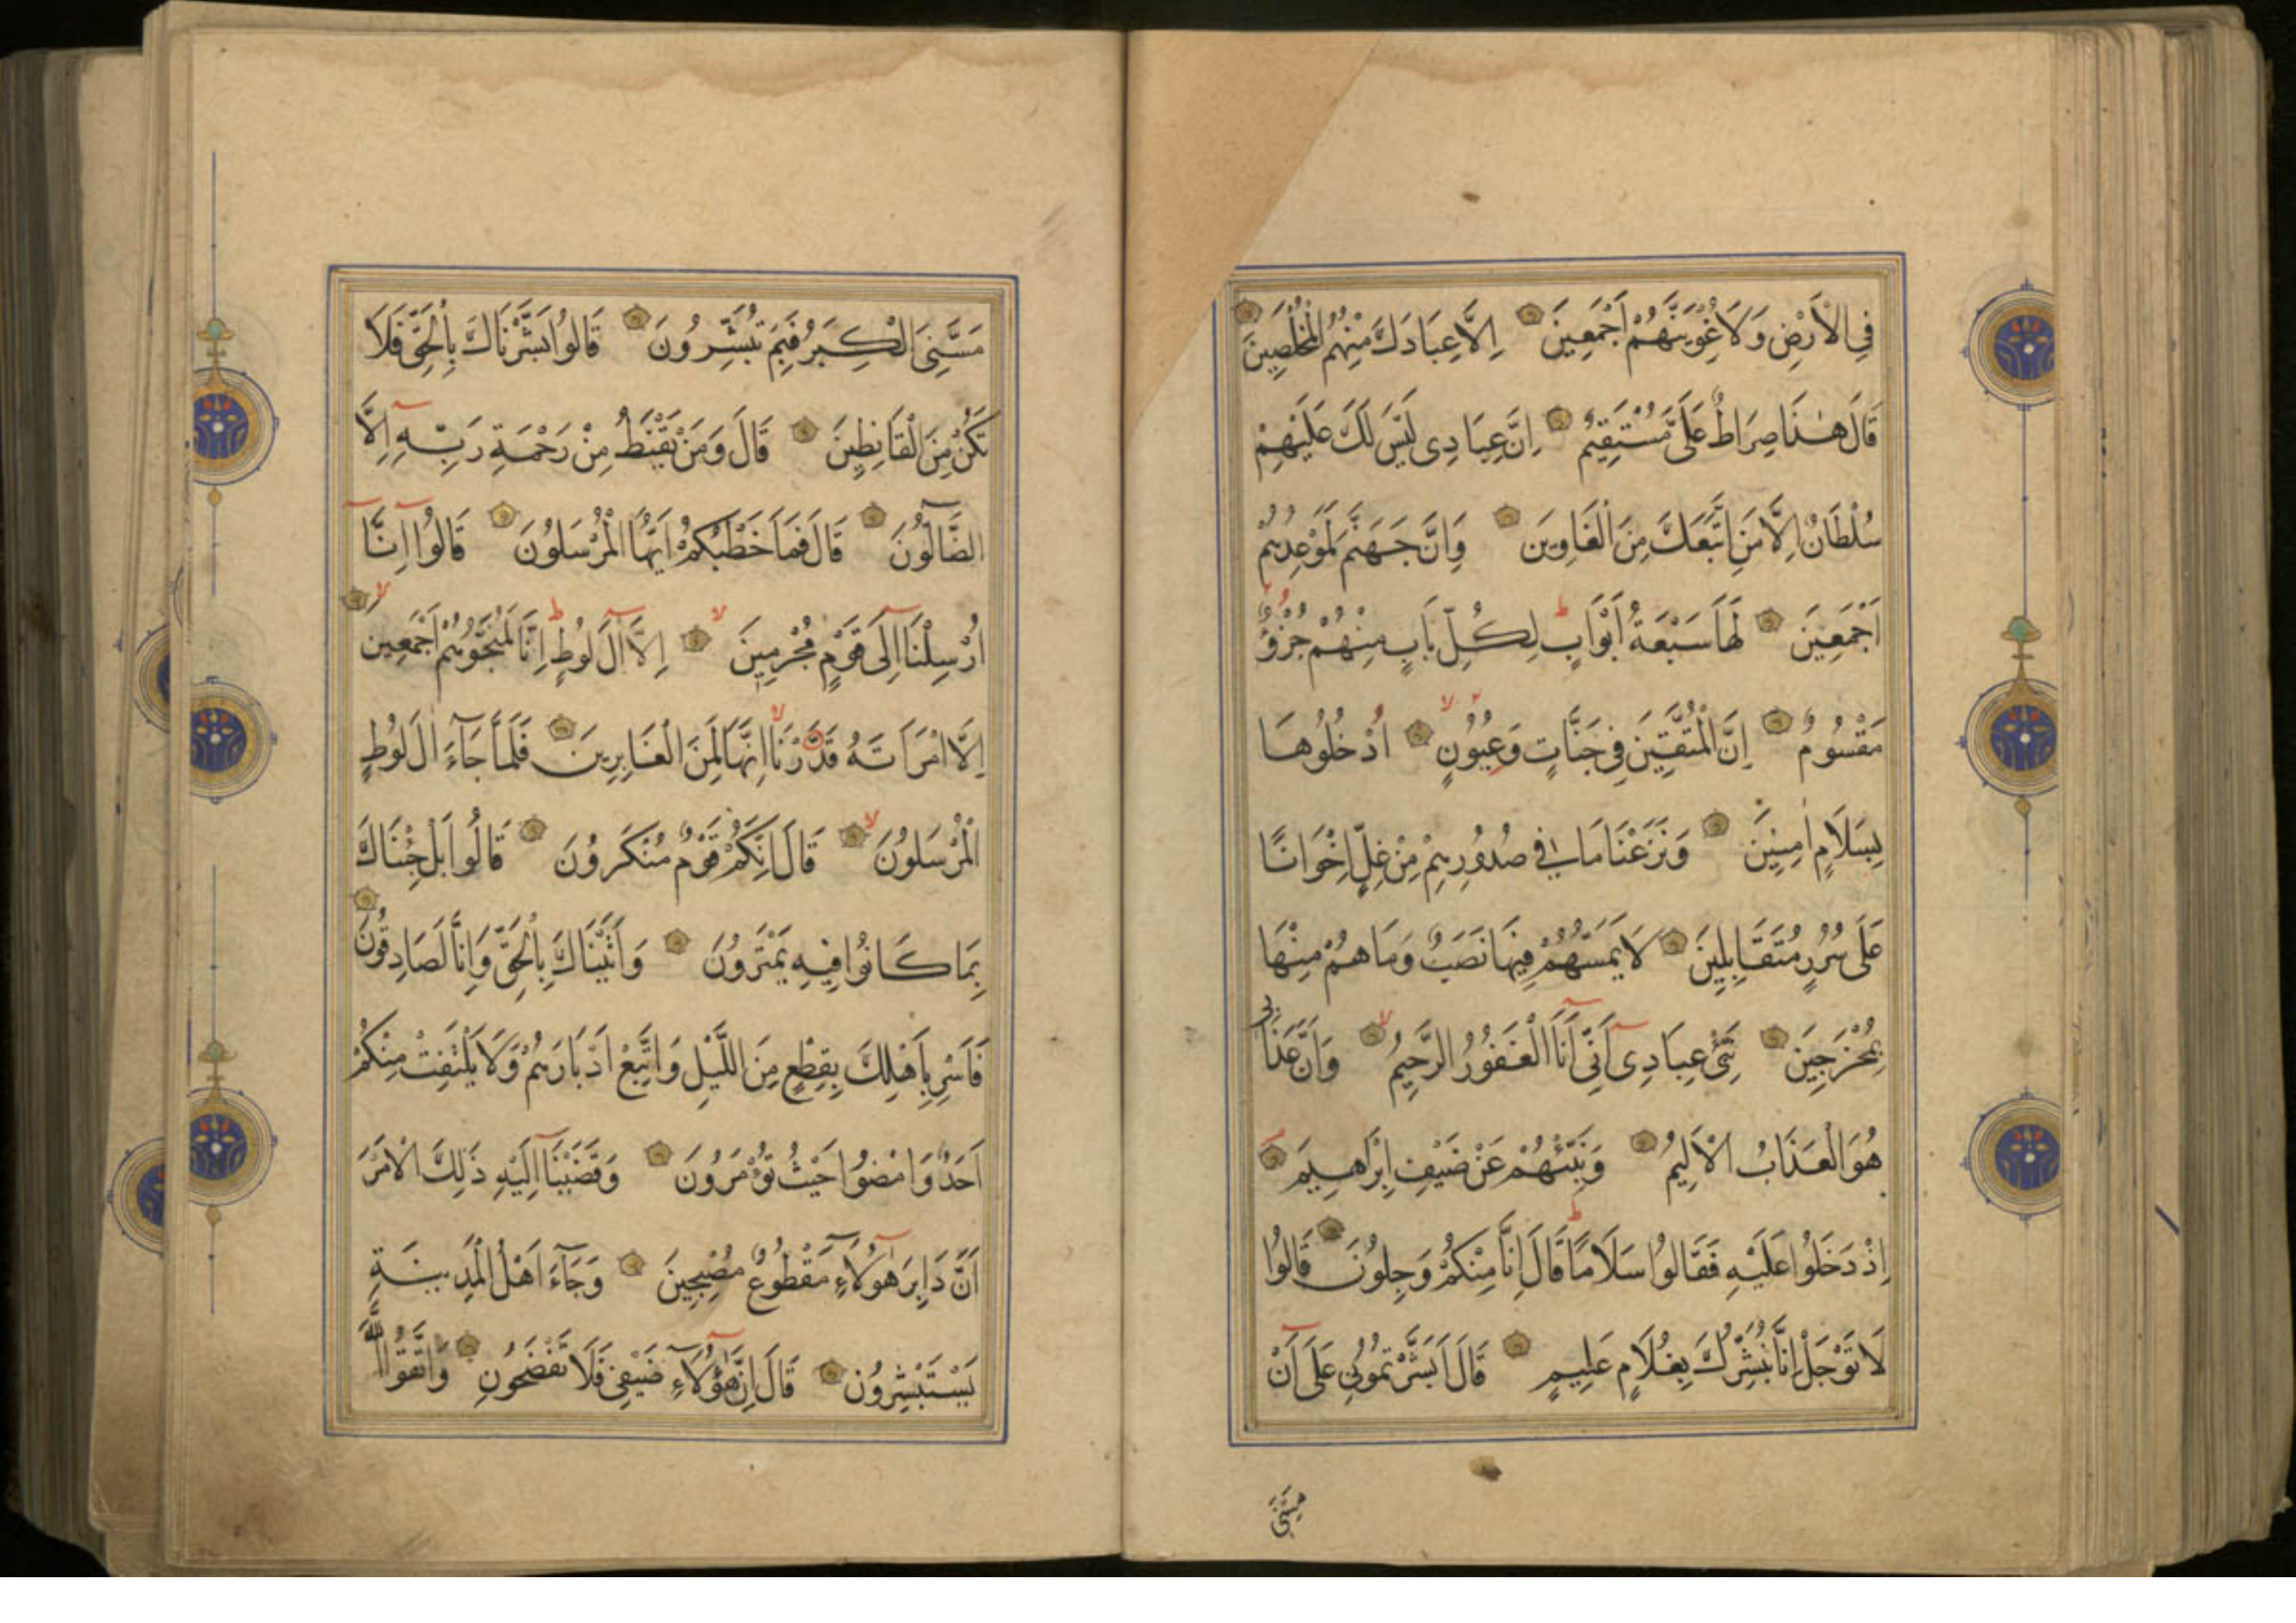 فِي الْأَرْضِ وَلَأُغْوِيَنَّهُمْ أَجْمَعِينَ اِلَّا عِبَادَكَ مِنْهُمُ الْمُخْلَصِينَ
قَالَ هٰذَا صِرَاطٌ عَلَىَّ مُسْتَقِيمٌ اِنَّ عِبَادِى لَيْسَ لَكَ عَلَيْهِمْ
سُلْطَانٌ اِلَّا مَنِ اتَّبَعَكَ مِنَ الْغَاوِينَ وَاِنَّ جَهَنَّمَ لَمَوْعِدُهُمْ
اَجْمَعِينَ لَهَا سَبْعَةُ اَبْوَابٍ لِكُلِّ بَابٍ مِنْهُمْ جُزْؤٌ
مَقْسُومٌ اِنَّ الْمُتَّقِينَ فِى جَنَّاتٍ وَعُيُونٍ اُدْخُلُوهَا
بِسَلَامٍ اٰمِنِينَ وَنَزَعْنَا مَا فِى صُدُورِهِمْ مِنْ غِلٍّ اِخْوَانًا
عَلَى سُرُرٍ مُتَقَابِلِينَ لَا يَمَسُّهُمْ فِيهَا نَصَبٌ وَمَا هُمْ مِنْهَا
بِمُخْرَجِينَ نَبِّئْ عِبَادِى اَنِّى اَنَا الْغَفُورُ الرَّحِيمُ وَاَنَّ عَذَابِى
هُوَ الْعَذَابُ الْاَلِيمُ وَنَبِّئْهُمْ عَنْ ضَيْفِ اِبْرَاهِيمَ
اِذْ دَخَلُوا عَلَيْهِ فَقَالُوا سَلَامًا قَالَ اِنَّا مِنْكُمْ وَجِلُونَ قَالُوا
لَا تَوْجَلْ اِنَّا نُبَشِّرُكَ بِغُلَامٍ عَلِيمٍ قَالَ اَبَشَّرْتُمُونِى عَلَى اَنْ
مَسَّنِىَ
مَسَّنِىَ الْكِبَرُ فَبِمَ تُبَشِّرُونَ قَالُوا بَشَّرْنَاكَ بِالْحَقِّ فَلَا
تَكُنْ مِنَ الْقَانِطِينَ قَالَ وَمَنْ يَقْنَطُ مِنْ رَحْمَةِ رَبِّهِ اِلَّا
الضَّالُّونَ قَالَ فَمَا خَطْبُكُمْ اَيُّهَا الْمُرْسَلُونَ قَالُوا اِنَّا
اُرْسِلْنَا اِلَى قَوْمٍ مُجْرِمِينَ اِلَّا اٰلَ لُوطٍ اِنَّا لَمُنَجُّوهُمْ اَجْمَعِينَ
اِلَّا امْرَاَتَهُ قَدَّرْنَا اِنَّهَا لَمِنَ الْغَابِرِينَ فَلَمَّا جَاءَ اٰلَ لُوطٍ
الْمُرْسَلُونَ قَالَ اِنَّكُمْ قَوْمٌ مُنْكَرُونَ قَالُوا بَلْ جِئْنَاكَ
بِمَا كَانُوا فِيهِ يَمْتَرُونَ وَاَتَيْنَاكَ بِالْحَقِّ وَاِنَّا لَصَادِقُونَ
فَاَسْرِ بِاَهْلِكَ بِقِطْعٍ مِنَ اللَّيْلِ وَاتَّبِعْ اَدْبَارَهُمْ وَلَا يَلْتَفِتْ مِنْكُمْ
اَحَدٌ وَامْضُوا حَيْثُ تُؤْمَرُونَ وَقَضَيْنَا اِلَيْهِ ذَلِكَ الْاَمْرَ
اَنَّ دَابِرَ هٰؤُلَاءِ مَقْطُوعٌ مُصْبِحِينَ وَجَاءَ اَهْلُ الْمَدِينَةِ
يَسْتَبْشِرُونَ قَالَ اِنَّ هٰؤُلَاءِ ضَيْفِى فَلَا تَفْضَحُونِ وَاتَّقُوا اللّٰهَ